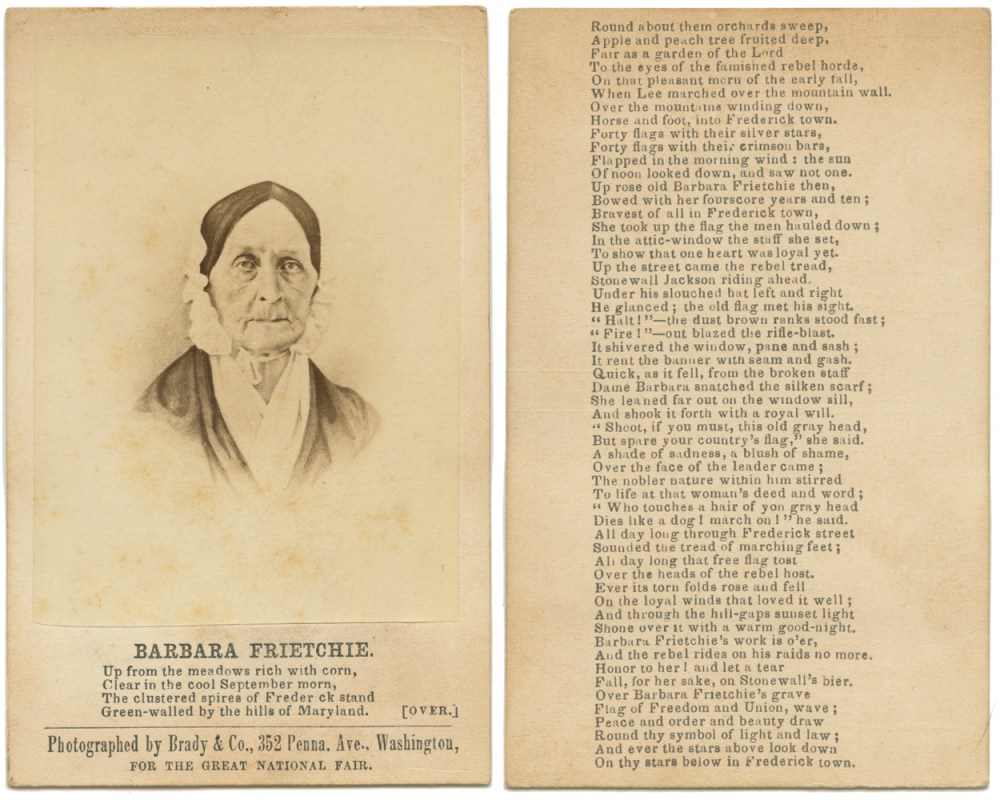 BARBARA FRIETCHIE.
Up from the meadows rich with corn,
Clear in the cool September morn,
The clustered spires of Freder ck stand
Green-walled by the hills of Maryland. [OVER.]
Photographed by Brady & Co., 352 Penna. Ave., Washington,
FOR THE GREAT NATIONAL FAIR.
Round about them orchards sweep,
Apple and peach tree fruited deep,
Fair as a garden of the Lord
To the eyes of the famished rebel horde,
On that pleasant morn of the early fall,
When Lee marched over the mountain wall.
Over the mountains winding down,
Horse and foot, into Frederick town.
Forty flags with their silver stars,
Forty flags with their crimson bars,
Flapped in the morning wind : the sun
Of noon looked down, and saw not one.
Up rose old Barbara Frietchie then,
Bowed with her fourscore years and ten ;
Bravest of all in Frederick town,
She took up the flag the men hauled down ;
In the attic-window the staff she set,
To show that one heart was loyal yet.
Up the street came the rebel tread,
Stonewall Jackson riding ahead.
Under his slouched hat left and right
He glanced ; the old flag met his sight.
“ Halt ! ”—the dust brown ranks stood fast ;
“ Fire ! ”—out blazed the rifle-blast.
It shivered the window, pane and sash ;
It rent the banner with seam and gash.
Quick, as it fell, from the broken staff
Dame Barbara snatched the silken scarf ;
She leaned far out on the window sill,
And shook it forth with a royal will.
“ Shoot, if you must, this old gray head,
But spare your country's flag,” she said.
A shade of sadness, a blush of shame,
Over the face of the leader came ;
The nobler nature within him stirred
To life at that woman's deed and word ;
“ Who touches a hair of yon gray head
Dies like a dog ! march on ! ” he said.
All day long through Frederick street
Sounded the tread of marching feet ;
All day long that free flag tost
Over the heads of the rebel host.
Ever its torn folds rose and fell
On the loyal winds that loved it well ;
And through the hill-gaps sunset light
Shone over it with a warm good-night.
Barbara Frietchie's work is o'er,
And the rebel rides on his raids no more.
Honor to her ! and let a tear
Fall, for her sake, on Stonewall's bier.
Over Barbara Frietchie's grave
Flag of Freedom and Union, wave ;
Peace and order and beauty draw
Round thy symbol of light and law ;
And ever the stars above look down
On thy stars below in Frederick town.